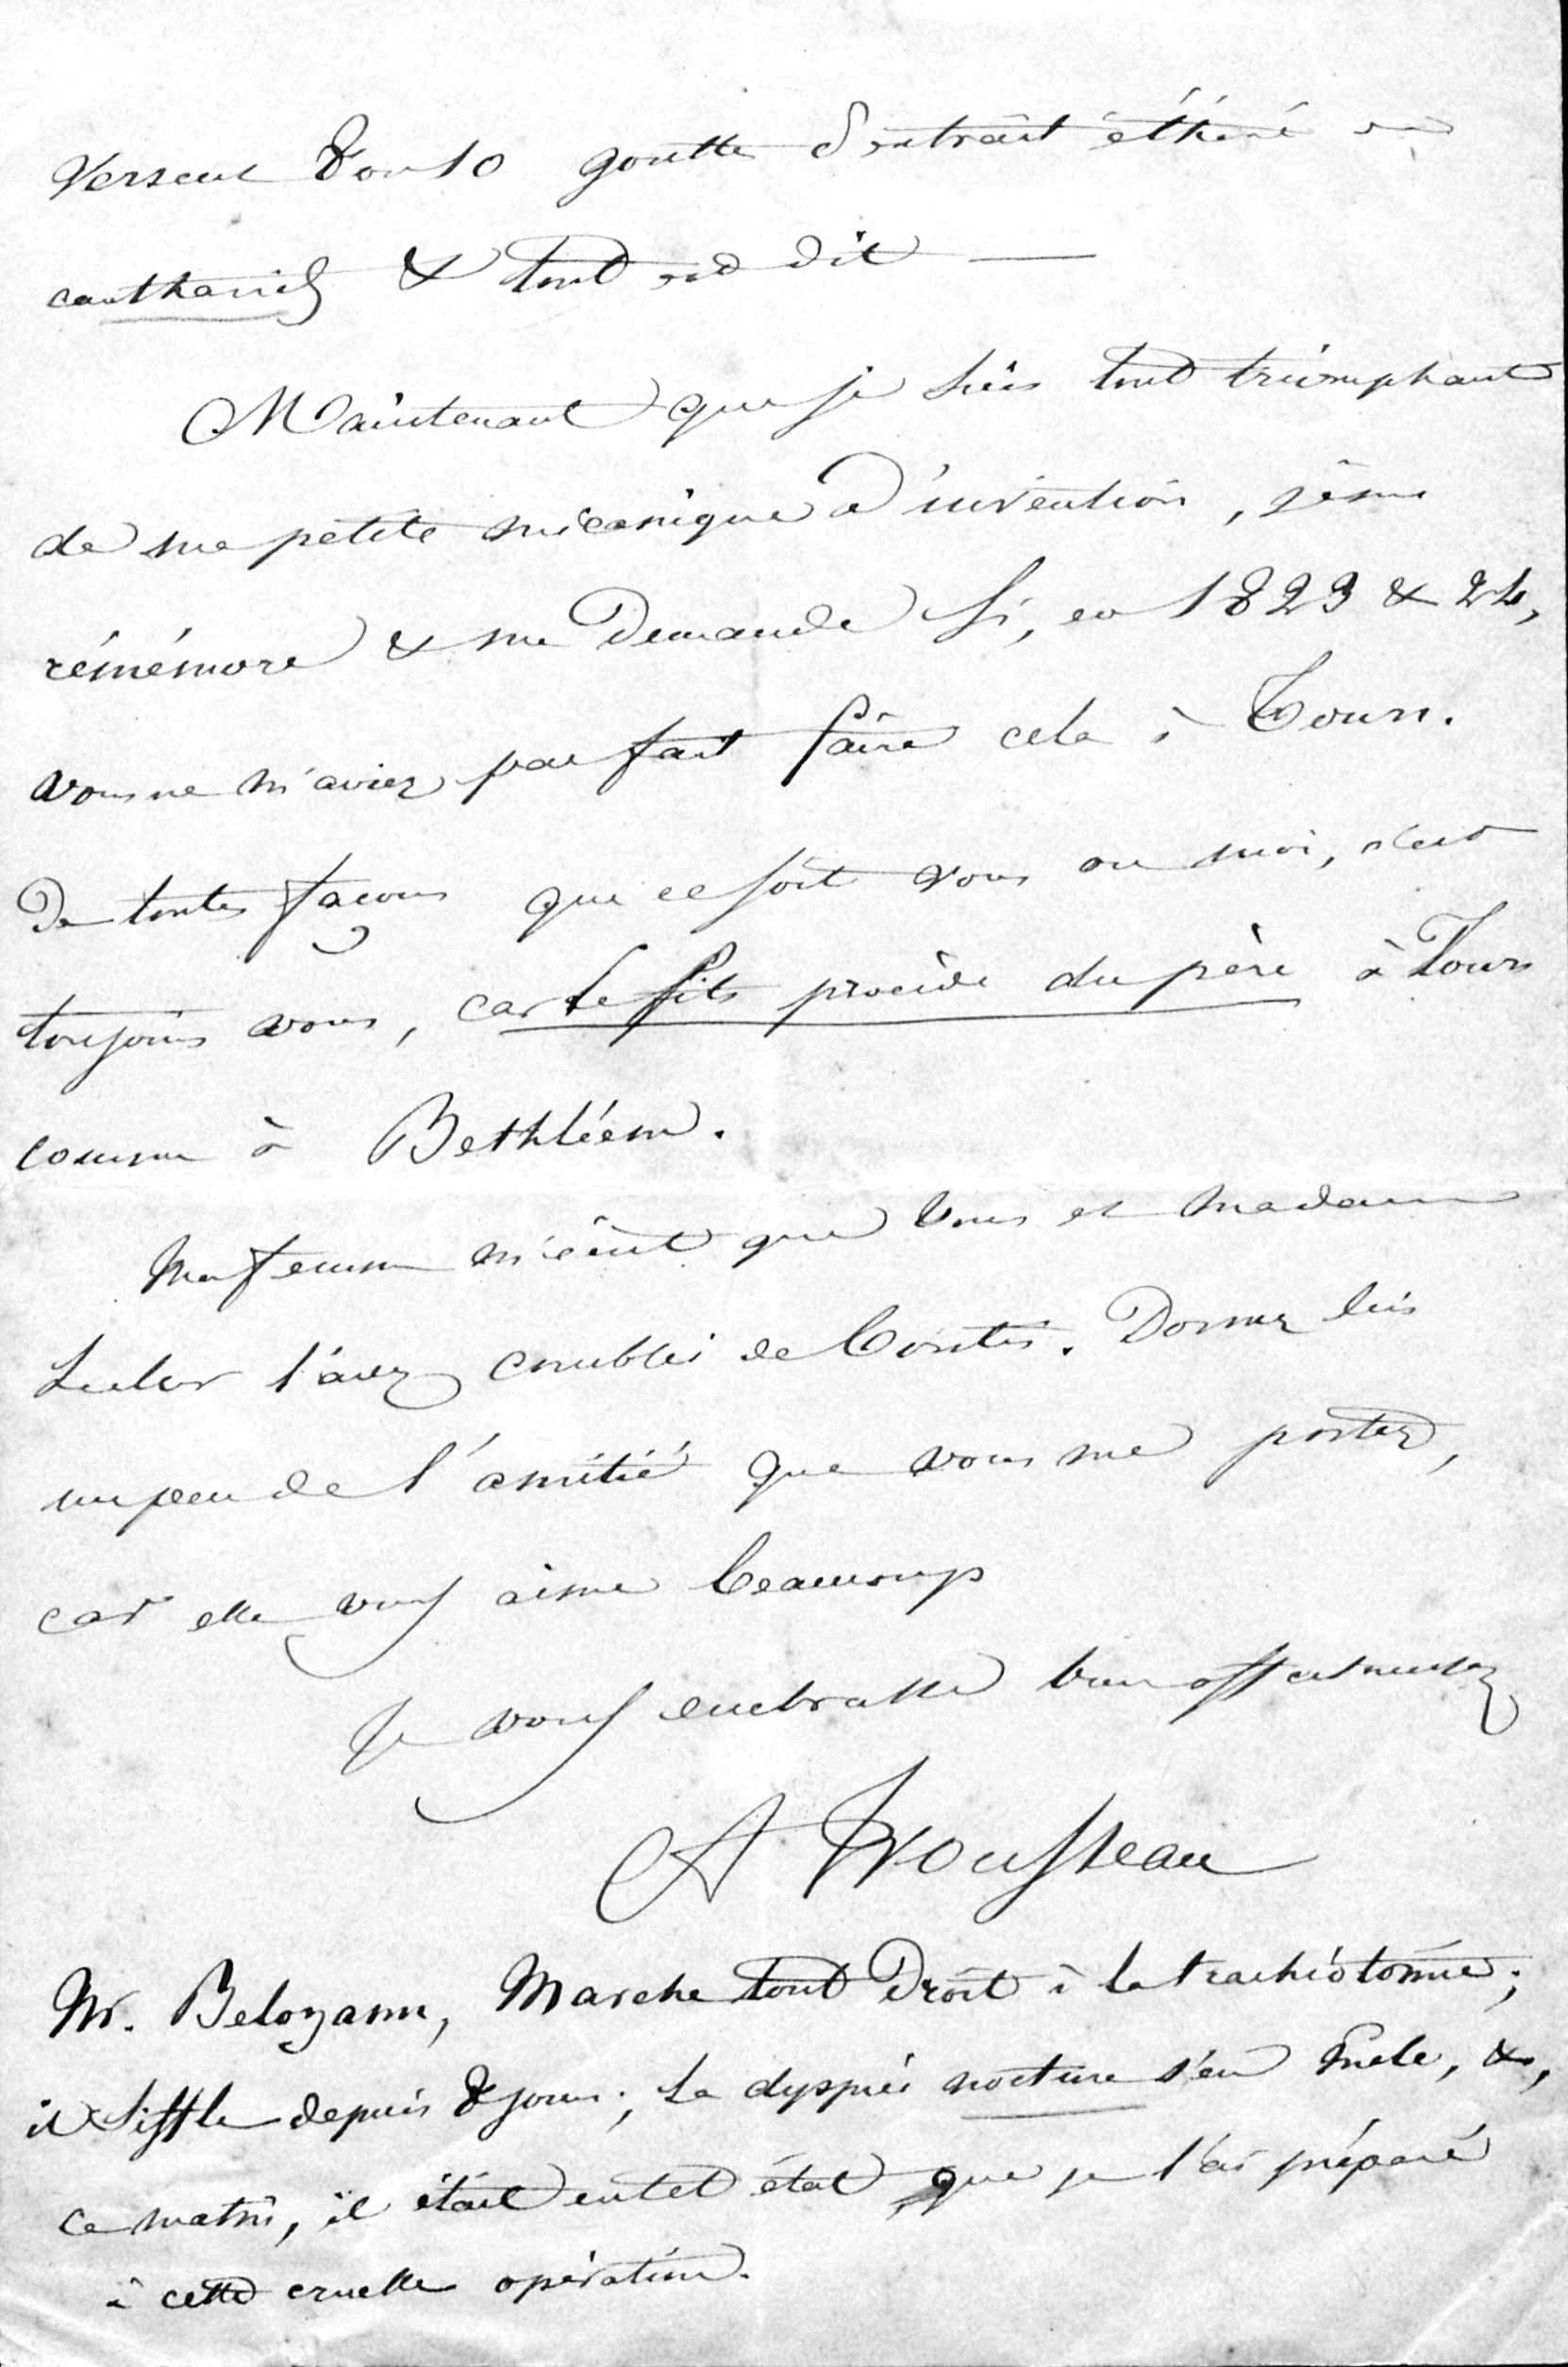 versent 8 ou 10 gouttes d'extrait éthéré de
cantharides & tout est dit —
Maintenant que je suis tout triomphant
de ma petite mécanique d'invention, je me
rémémore & me demande si, en 1823 & 24,
vous ne m'aviez pas fait faire cela à Tours.
De toutes façons que ce soit vous ou moi, c'est
toujours vous, car le fils procède du père à Tours
comme à Bethléem.
Ma femme m'écrit que vous et madame
l'avez comblée de bontés. Donnez lui
un peu de l'amitié que vous me portez,
car elle vous aime beaucoup
Je vous embrasse bien affectueusement
A Trousseau
Mr. Belozanne, Marche tout droit à la trachéotomie;
il siffle depuis 8 jours; la dyspnée nocturne s'en mèle, &,
ce matin, il était en tel état que je l'ai préparé
à cette cruelle opération.